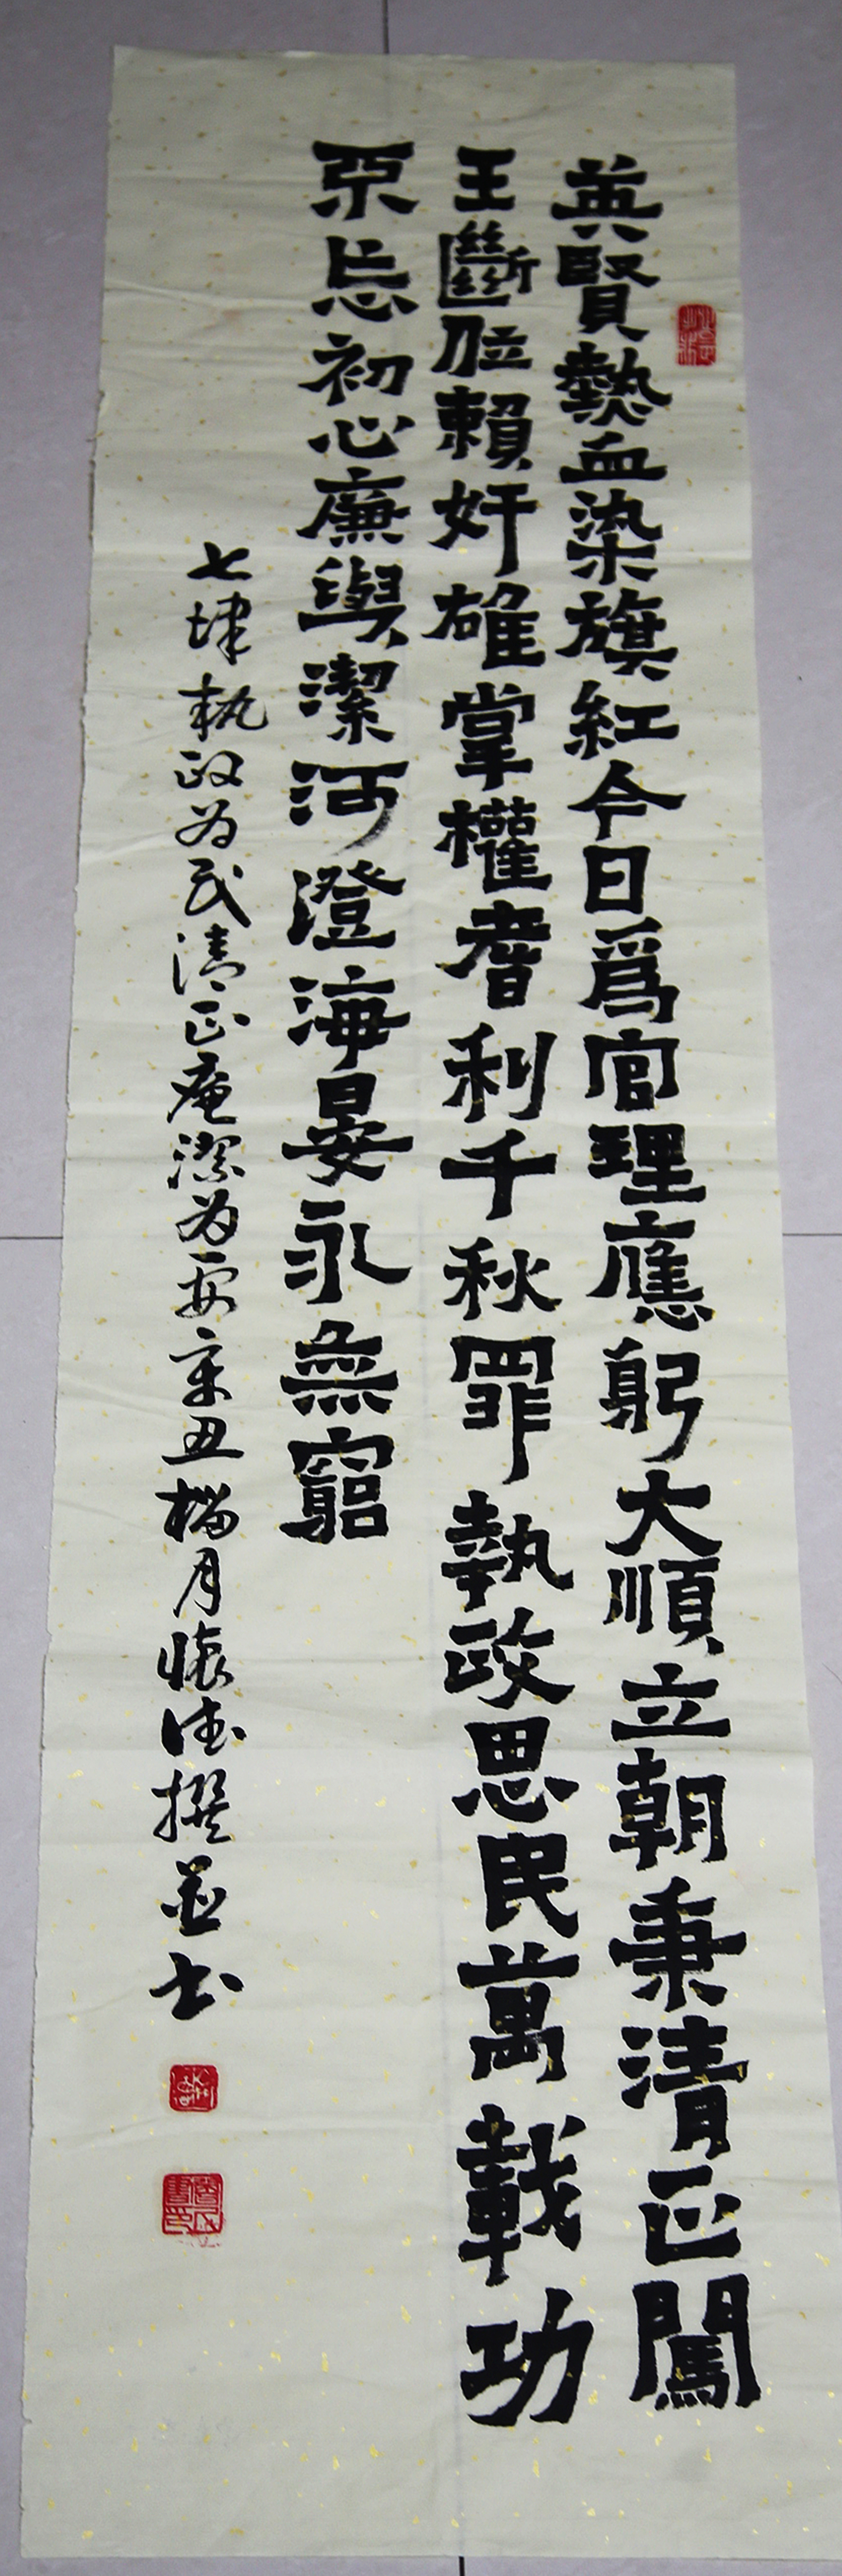 英賢熱血染旗紅今日爲官理應躬大順立朝秉清正闖
王斷賴奸雄掌權耆利千秋罪執政思民萬載功
忘初心廉與潔河澄海晏永無窮
七律執政为民清正廉潔为要辛丑榴月懷德撰並书